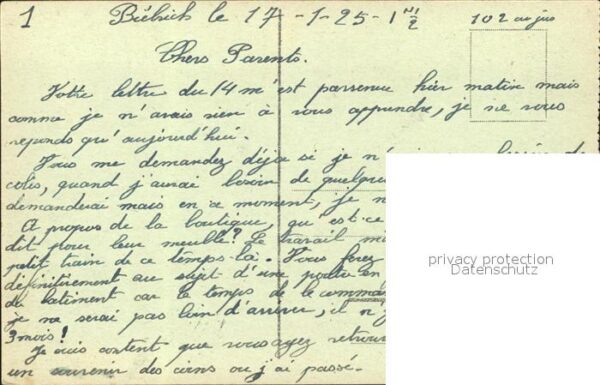 1 Biebrich le 17-1-25-1 H 1/2 102 au jus
Chers Parents.
Votre lettre du 14 m'est parvenue hier matin mais
comme je n'avais rien à vous apprendre, je ne vous
reponds qu'aujourd'hui.
Vous me demandez déja si je n'ai besoin de
colis, quand j'aurai besoin de quelque
demanderai mais en ce moment, je n
A propos de la boutique, qu'est-ce
dit pour leur meuble? Le travail
petit train de ce temps-là. Vous ferez
définitivement au sujet d'une en
du batiment car le temps de le
je ne serai pas loin d'arriver, il n
3 mois!
Je suis content que vous ayez
un souvenir des coins ou j'ai passé.
privacy protection
Datenschutz